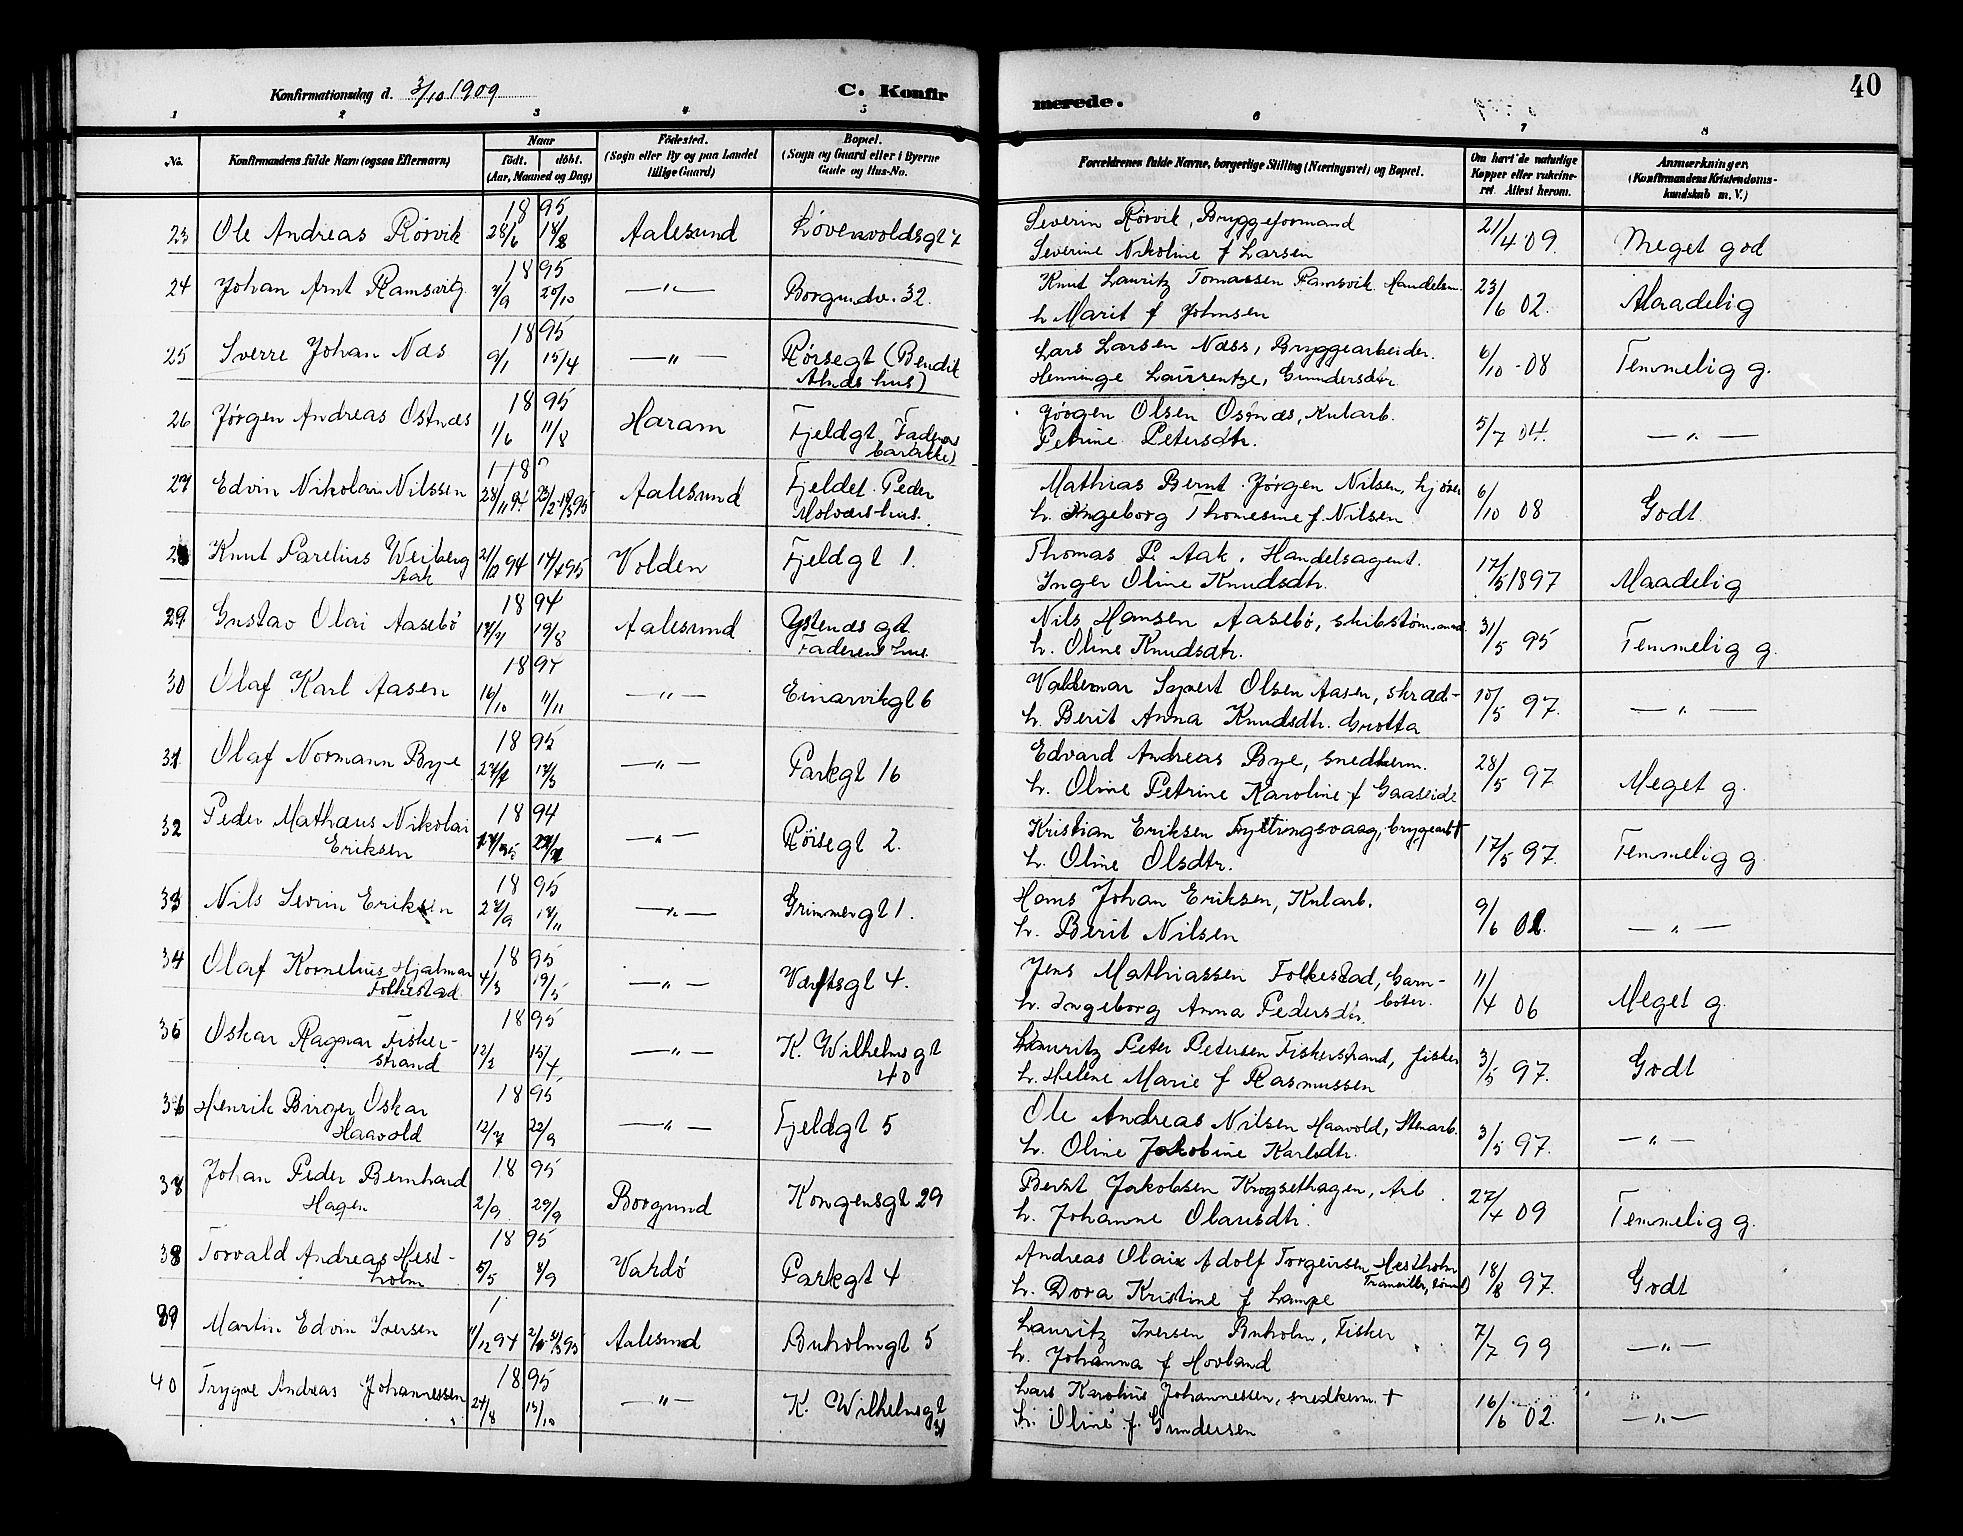 40
Konfirmationsdag d. 3/10 1909
C. Konfirmerede.
1 2 3 4 5 6 7 8
No.
Konfirmandens fulde Navn (ogsaa Efternavn)
Naar
födt. döbt.
(Aar, Maaned og Dag)
Födested.
(Sogn eller By og paa Landet
tillige Gaard)
Bopæl.
(Sogn og Gaard eller i Byerne
Gade og Hus-No.
Forældrenes fulde Navne, borgerlige Stilling (Næringsvei) og Bopæl.
Om havt de naturlige
Kopper eller vakcine-
ret. Attest herom.
Anmærkninger.
(Konfirmandens Kristendoms-
kundskab m. V.)
18 95
23 Ole Andreas Rörvik 28/6 18/8 Aalesund Lövenvoldsgt 7 Severin Rörvik, Bryggeformand 21/4 09. Meget god
Severine Nikoline f Larsen
18 95
24 Johan Arnt Ramsvig 2/9 20/10 —"— Borgundv. 32. Knut Lauritz Tomassen Ramsvik Handelsm. 23/6 02. Maadelig
h Marit f Johnsen
18 95
25 Sverre Johan Næs 9/1 15/4 —"— Rörsegt (Bendik Lars Larsen Næss, Bryggearbeider. 6/10 -08 Temmelig g.
Alnæs hus) Henninge Laurentze, Gundersdtr
18 95
26 Jörgen Andreas Ostnæs 1/6 11/8 Haram Fjeldgt, Faderens Jörgen Olsen Ostnæs, Kularb. 5/7 04. —"—
barakke) Petrine Petersdtr.
27 Edvin Nikolai Nilssen 28/11 94 Aalesund Fjeldet. Peder Mathias Bernt Jörgen Nilsen, 6/10 08 Godt
Molværs hus. h. Ingeborg Thomesine f. Nilsen
28 Knut Parelius Weiberg 21/12 94 17/4 95 Volden Fjeldgt 1. Thomas P. Aak, Handelsagent. 17/5 1897 Maadelig
Aak Inger Oline Knudsdtr.
18 94
29 Gustav Olai Aasebö 14/7 19/8 Aalesund Ystenæs gt. Nils Hansen Aasebö, skibstömmermand 31/5 95 Temmelig g.
Faderens hus. h. Oline Knudsdtr.
18 94
30 Olaf Karl Aasen 16/10 11/11 —"— Einarvikgt 6 Valdemar Sivert Olsen Aasen, skræd- 10/5 97. —"—
h. Berit Anna Knudsdtr. Grotta
18 95
31 Olaf Normann Bye —"— Parkgt 16 Edvard Andreas Bye, snedkerm. 28/5 97 Meget g.
h. Oline Petrine Karoline f Gaaseide
18 94
32 Peder Mathæus Nikolai —"— Röisegt 2. Kristian Eriksen Fyllingsvaag, brygearb † 17/5 97. Temmelig g.
Eriksen h. Oline Olsdtr.
18 95
33 Nils Sevrin Eriksen —"— Grimmergt 1. Hans Johan Eriksen, Kularb. 9/6 —"—
h. Berit Nilsen
18 95
34 Olaf Kornelius Hjalmar 4/3 19/5 —"— Værftsgt 4. Jens Mathiassen Folkestad, Garn- 11/4 06 Meget g.
Folkestad h. Ingeborg Anna Pedersdtr. böter.
18 95
35 Oskar Ragnar Fisker- 12/2 15/4 —"— K. Wilhelmsgt Lauritz Peter Petersen Fiskerstrand, fisker 3/5 97. Godt
strand 40 h. Helene Marie f Rasmussen
18 95
36 Henrik Birger Oskar 12/7 22/9 —"— Fjeldgt 5 Ole Andreas Nilsen Haavold, Stenarb. 3/5 97. —"—
Haavold h. Oline Jakobine Karlsdtr.
18 95
Johan Peder Bernhard 2/9 29/9 Borgund Kongensgt 29 Bernt Jakobsen Krogsethagen, Arb. 27/4 09 Temmelig g.
Hagen h. Johanne Olausdtr.
18 95
38 Torvald Andreas Hest- 5/5 8/9 Vardö Parkgt 4 Andreas Olai Adolf Torgeirsen Hestholm 18/8 97. Godt
holm h. Dora Kristine f Lampe
39 Martin Edvin Iversen 11/12 94 Aalesund Buholmgt 5 Lauritz Iversen Buholm, Fisker 7/7 99 —"—
h. Johanna f Hovland
18 95
40 Trygve Andreas Johannessen 24/8 13/10 —"— K. Wilhelmsgt Lars Karolius Johannessen, snedkerm. † 16/6 02. —"—
31 h. Oline f. Gundersen